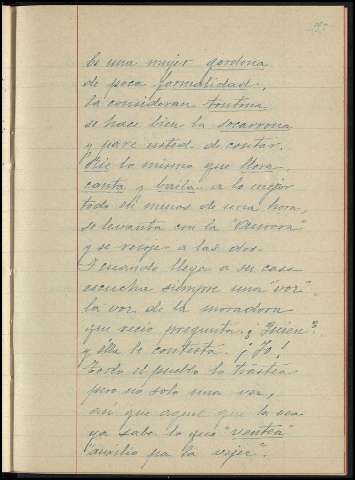 Es una mujer gordona
de poca formalidad,
la consideran tontona
se hace bien la socarrona
y pare usted de contar.
Rie lo mismo que llora
canta y baila a lo mejor
todo en menos de una hora,
se levanta con la "Aurora"
y se recoje a las dos.
Y cuando llega a su casa
escucha siempre una "voz"
la voz de la moradora
que recio pregunta ¿Quien?
y élla le contesta ¡Yo!
Todo el pueblo lo trástea
pero no solo una vez,
así que aquel que la vea
ya sabe lo que "ventéa"
"auxilio pa la vejez".